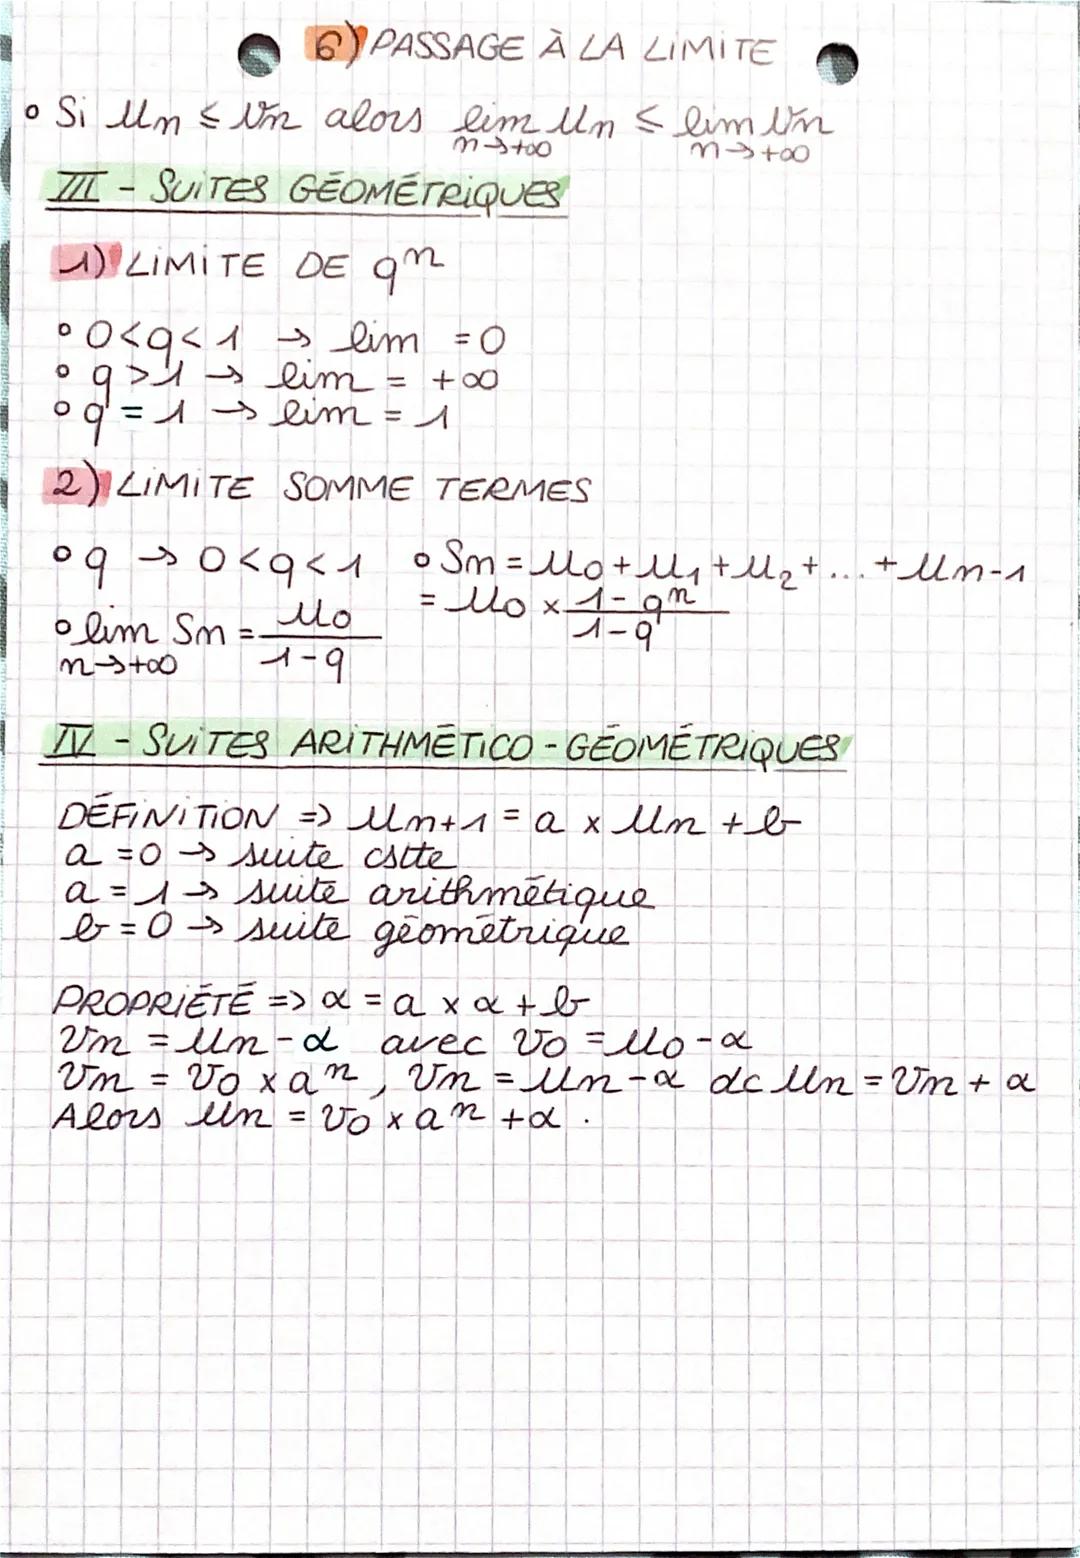 6) PASSAGE À LA LIMITE
° Si Un ≤ Vn alors lim Un ≤ lim Vn
n→+∞ n→+∞
III - SUITES GÉOMÉTRIQUES
1) LIMITE DE qⁿ
° 0<q<1 → lim = 0
° q>1 → lim = +∞
° q = 1 → lim = 1
2) LIMITE SOMME TERMES
° q → 0<q<1 ° Sn = U0 + U1 + U2 + ... + Un-1
= U0 × (1-qⁿ)/(1-q)
° lim Sn = U0/(1-q)
n→+∞
IV - SUITES ARITHMÉTICO-GÉOMÉTRIQUES
DÉFINITION => Un+1 = a × Un + b
a = 0 → suite cstte
a = 1 → suite arithmétique
b = 0 → suite géométrique
PROPRIÉTÉ => α = a × α + b
Vn = Un - α avec V0 = U0 - α
Vn = V0 × aⁿ, Vn = Un - α dc Un = Vn + α
Alors Un = V0 × aⁿ + α.